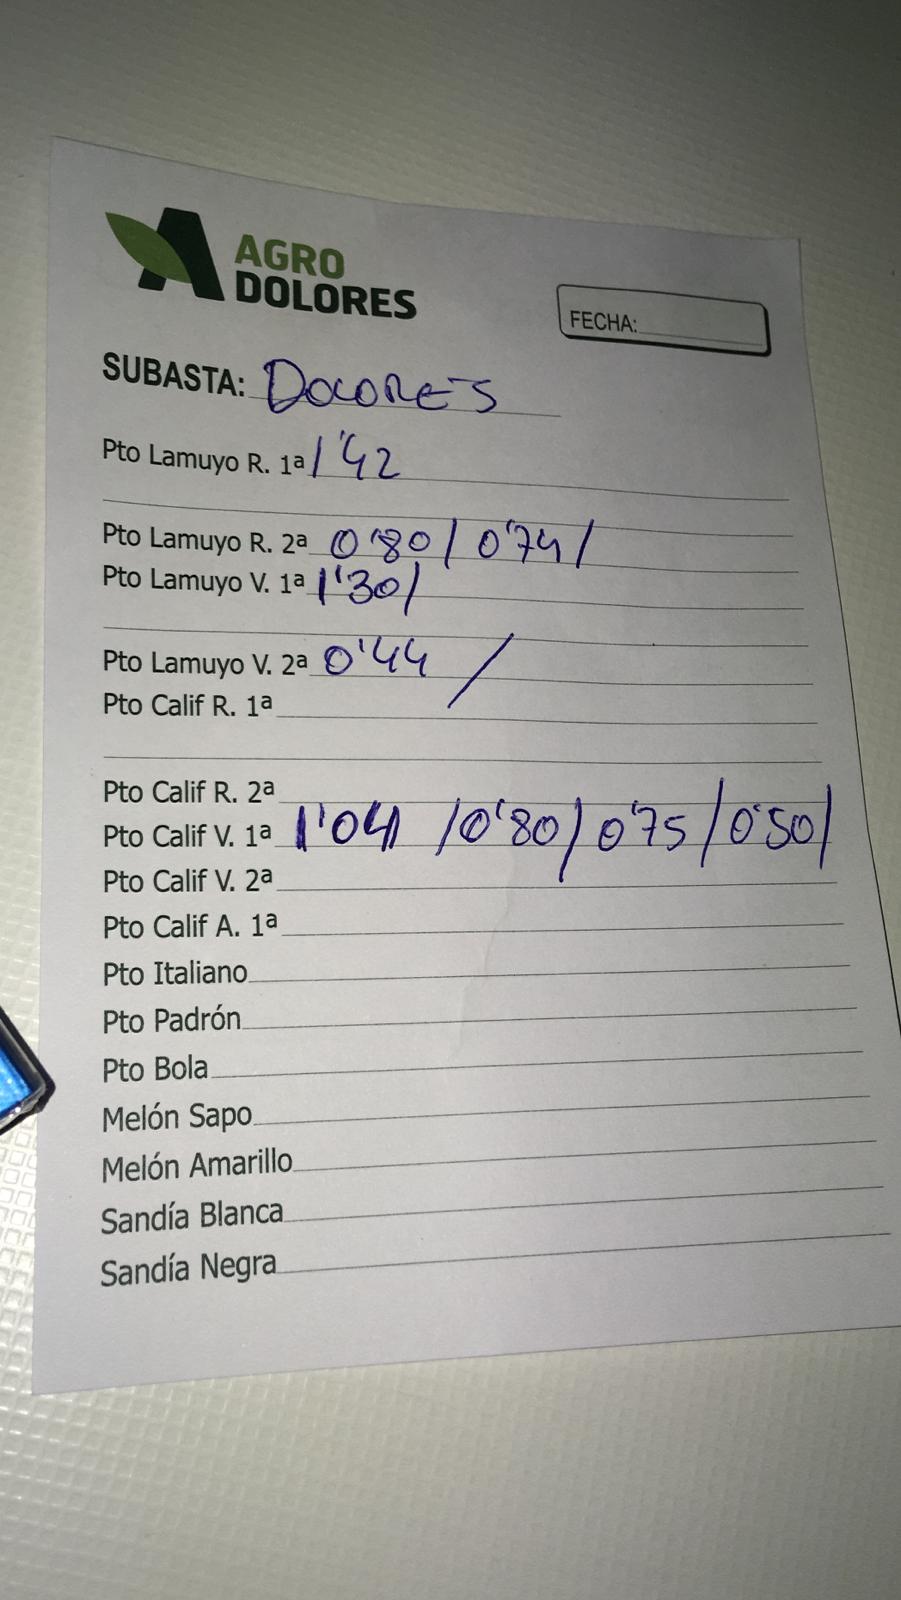 AGRO
DOLORES
FECHA:
SUBASTA: DOLORES
Pto Lamuyo R. 1ª 1'42
Pto Lamuyo R. 2ª 0'80/ 0'74/
Pto Lamuyo V. 1ª 1'30/
Pto Lamuyo V. 2ª 0'44 /
Pto Calif R. 1ª
Pto Calif R. 2ª
Pto Calif V. 1ª 1'04 /0'80/ 0'75 /0'50/
Pto Calif V. 2ª
Pto Calif A. 1ª
Pto Italiano
Pto Padrón
Pto Bola
Melón Sapo
Melón Amarillo
Sandía Blanca
Sandía Negra